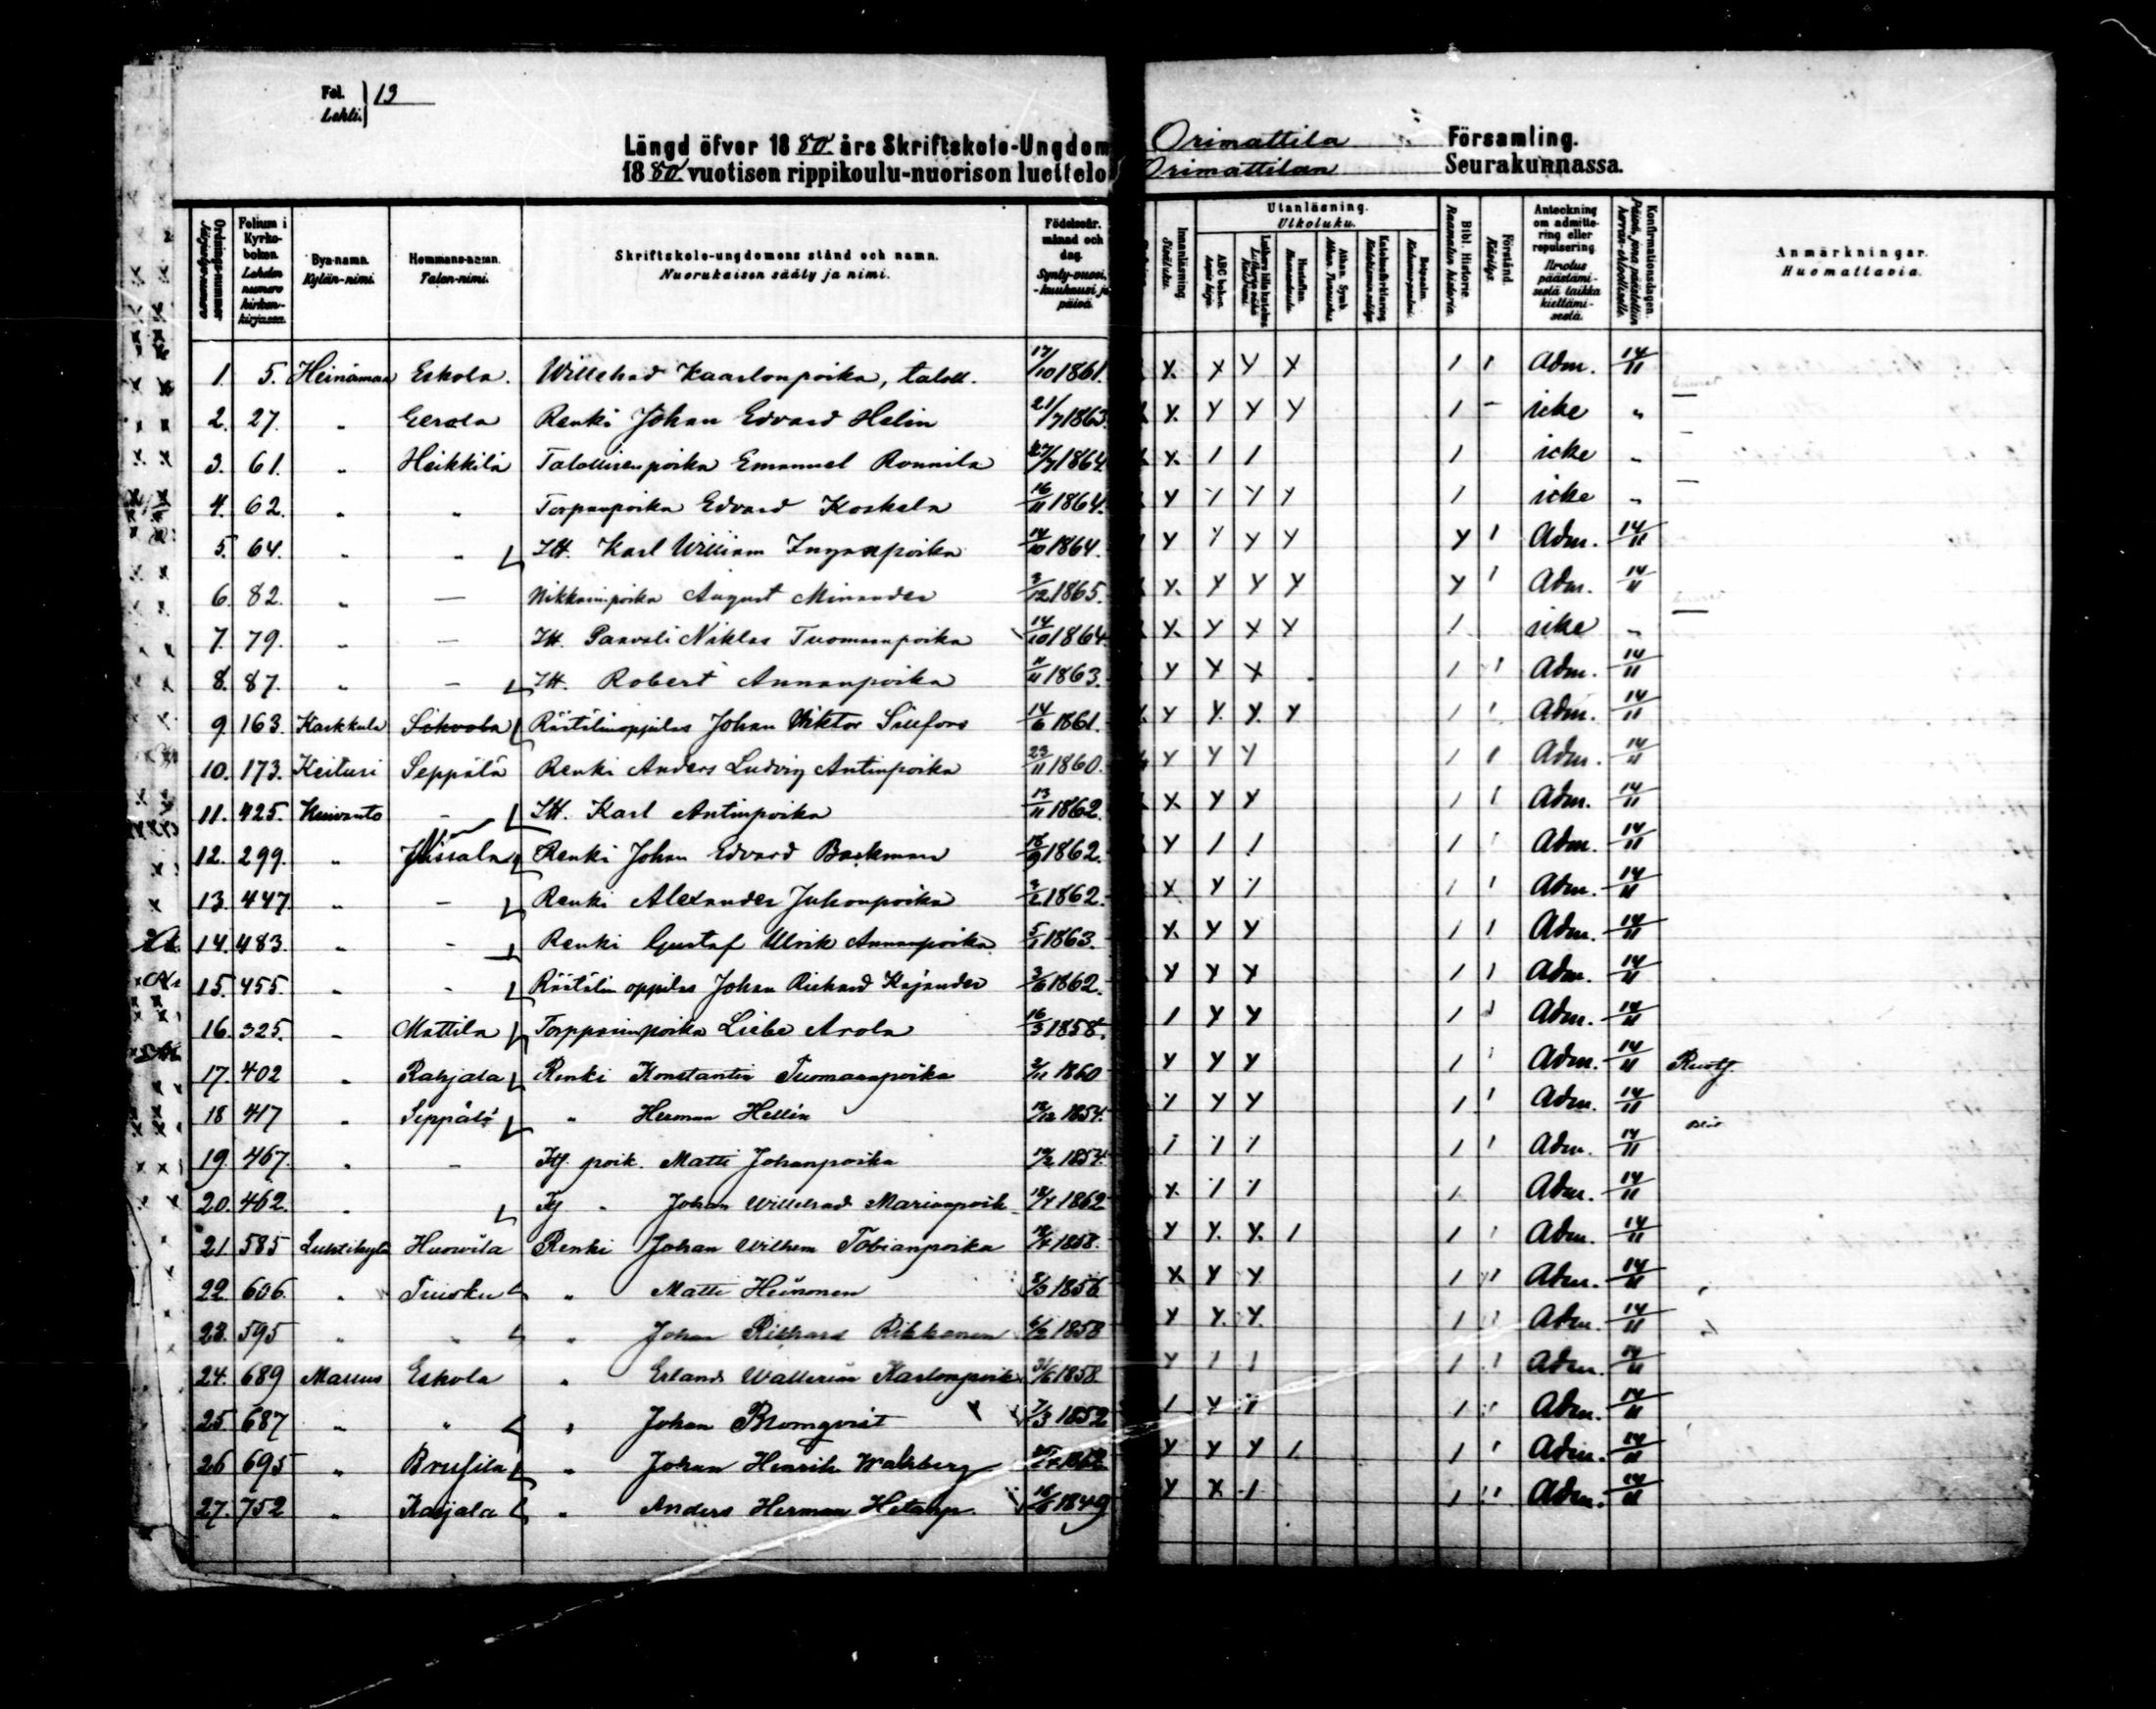 Fol. 13
Lehti.
Längd öfver 1880 års Skriftskole-Ungdom Orimattila Församling.
1880 vuotisen rippikoulu-nuorison luettelo Orimattilan Seurakunnassa.
Ordnings-nummer Järjestys-numero
Folium i Kyrko-boken. Lehden numero kirkon-kirjassa.
Bya-namn. Kylän-nimi.
Hemmans-namn. Talon-nimi.
Skriftskole-ungdomens stånd och namn. Nuorukaisen sääty ja nimi.
Födelseår, månad och dag. Synty-vuosi, -kuukausi ja päivä.
Innanläsning. Sisäluku.
Utanläsning. Ulkoluku.
ABC boken. Aapis kirja.
Luthers lilla katekes.
Hustaflan. Huoneentaulu.
Athan. Symb. Athan. Tunnustus.
Katekesförklaring
Botpsalm. Katumus-psalmi.
Bibl. Historie. Raamatun historia.
Förstånd. Käsitys.
Anteckning om admittering eller repulsering Ilmoitus päästämisestä taikka kieltämisestä.
Konfirmationsdagen.
Anmärkningar. Huomattavia.
1. 5. Heinämaa Eskola. Willehad Kaarlonpoika, taloll. 17/10 1861. X. X Y X 1 1 Adm. 14/11
2. 27. " Gerola Renki Johan Edvard Helin 21/7 1863. X. Y Y Y 1 - icke "
3. 61. " Heikkilä Talollisenpoika Emanuel Ronnila 27/7 1864. X. 1 1 1 icke "
4. 62. " " Torpanpoika Edvard Koskela 16/11 1864. Y Y Y Y 1 icke "
5. 64. " " Itt. Karl William 14/10 1864. Y Y Y Y Y 1 Adm. 14/11
6. 82. " — August Minander 3/12 1865. X. Y Y Y Y 1 Adm. 14/11
7. 79. " — Itt. Paavali Niklas Tuomaanpoika 14/10 1864. X. Y X Y 1 icke "
8. 87. " — Itt. Robert Annanpoika 11/11 1863. Y X X 1 1 Adm. 14/11
9. 163. Karkkula Sihvola Räätälinoppilas Johan Wiktor Silfors 14/6 1861. Y Y. Y. Y 1 1 Adm. 14/11
10. 173. Keituri Seppälä Renki Anders Ludvig Antinpoika 23/11 1860. Y Y Y 1 1 Adm. 14/11
11. 425. Kuivanto - Itt. Karl Antinpoika 13/11 1862. X Y Y 1 1 Adm. 14/11
12. 299. " Renki Johan Edvard Backman 18/9 1862. Y 1 1 1 1 Adm. 14/11
13. 447. " - Renki Alexander Juhonpoika 1862. X Y 1 1 1 Adm. 14/11
14. 483. " - Renki Gustaf Ulrik Annanpoika 5/1 1863. X. Y Y 1 1 Adm. 14/11
15. 455. " - Räätälin oppilas Johan Richard Kajander 3/6 1862. Y Y X 1 1 Adm. 14/11
16. 325. " Mattila Torpparinpoika Liebe Arola 16/3 1858. 1 Y Y 1 1 Adm. 14/11
17. 402 " Rahjala Renki Konstantin Tuomaanpoika 2/11 1860 Y Y Y 1 1 Adm. 14/11
18 417 " Seppälä " Herman Hellin 1854. Y Y Y 1 1 Adm. 14/11
19. 467. " - poik. Matti Johanpoika 1854. 1 1 1 1 1 Adm. 14/11
20. 462. " " Johan Willehad Marianpoik 1862 X. 1 1 1 Adm. 14/11
21 585 Luhtikylä Renki Johan Wilhem Tobianpoika 1858. Y Y. Y. 1 1 1 Adm. 14/11
22. 606. " Tuusku " Matti Heinonen 8/3 1856 X Y Y 1 1 Adm. 14/11
23. 595 " " " Johan Richard Rikkonen 6/2 1858 Y Y. Y. 1 1 Adm. 14/11
24. 689 Mallus Eskola " Erland Kaarlonpoik 1858. Y 1 1 1 1 Adm. 14/11
25 687 " " " Johan Blomqvist 7/3 1852 1 Y 1 1 1 Adm. 14/11
26 695 " Brusila " Johan Henrik Walsberg Y Y Y 1 1 1 Adm. 14/11
27. 752 " Karjala " Anders Herman 1849 Y X 1 1 1 Adm. 14/11